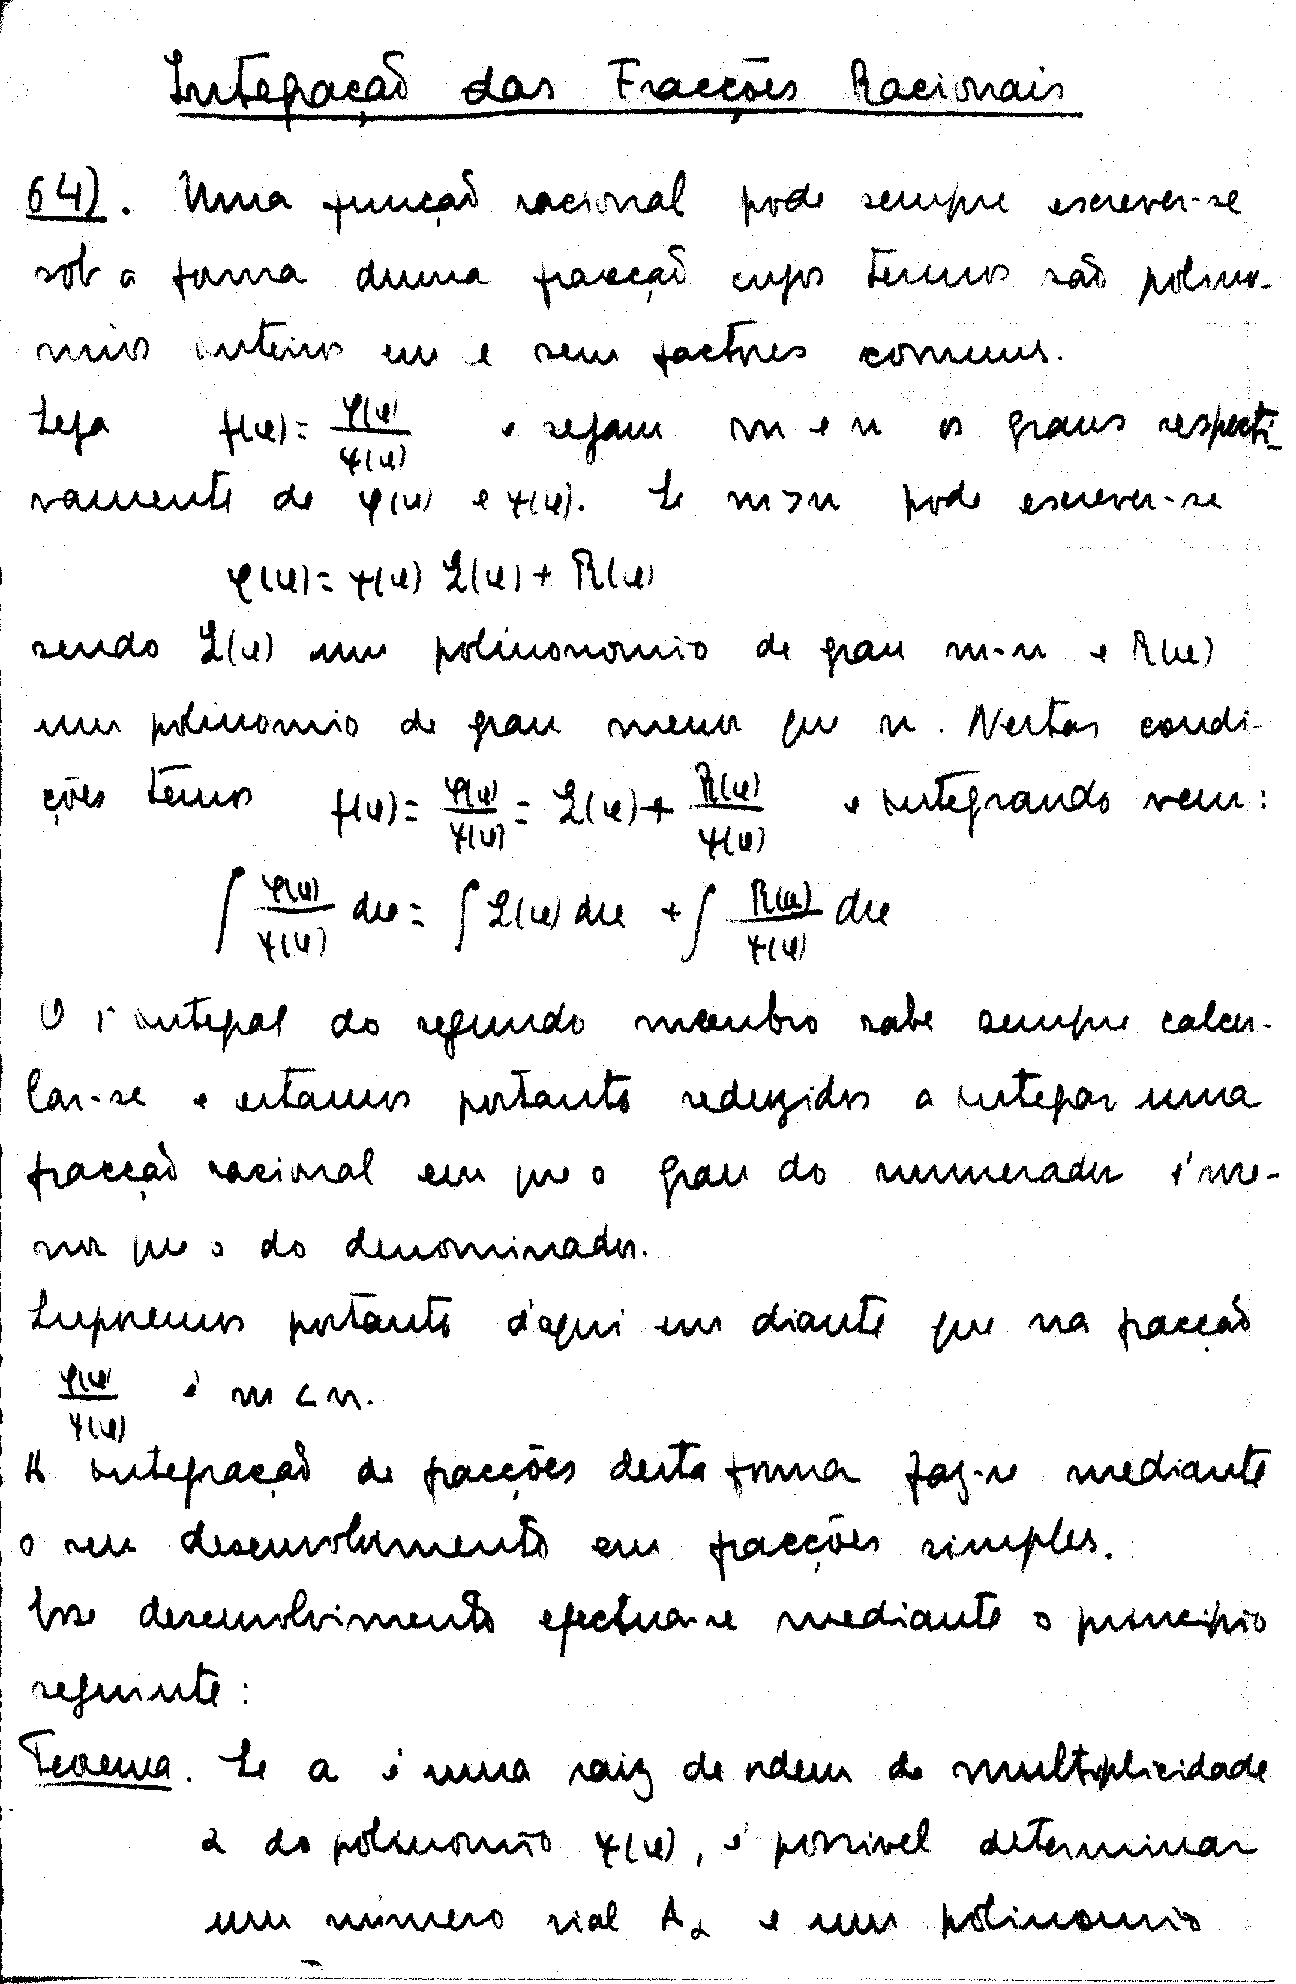 Integração das Fracções Racionais
64). Uma função racional pode sempre escrever-se
sob a forma duma fracção cujos termos são polino-
mios inteiros em x e sem factores comuns.
Seja f(x) = φ(x)/ψ(x) e sejam m e n os graus respecti-
vamente de φ(x) e ψ(x). Se m>n pode escrever-se
φ(x) = ψ(x) Q(x) + R(x)
sendo Q(x) um polinonomio de grau m-n e R(x)
um polinomio de grau menor que n. Nestas condi-
ções temos f(x) = φ(x)/ψ(x) = Q(x) + R(x)/ψ(x) e integrando vem:
∫ φ(x)/ψ(x) dx = ∫ Q(x) dx + ∫ R(x)/ψ(x) dx
O 1º integral do segundo membro sabe sempre calcu-
lar-se e estamos portanto reduzidos a integrar uma
fracção racional em que o grau do numerador é me-
nor que o do denominador.
Suporemos portanto d'aqui em diante que na fracção
φ(x)/ψ(x) é m < n.
A integração de fracções desta forma faz-se mediante
o seu desenvolvimento em fracções simples.
Esse desenvolvimento efectua-se mediante o principio
seguinte:
Teorema. Se a é uma raiz de ordem de multiplicidade
α do polinomio ψ(x), é possivel determinar
um número rial A_α e um polinomio